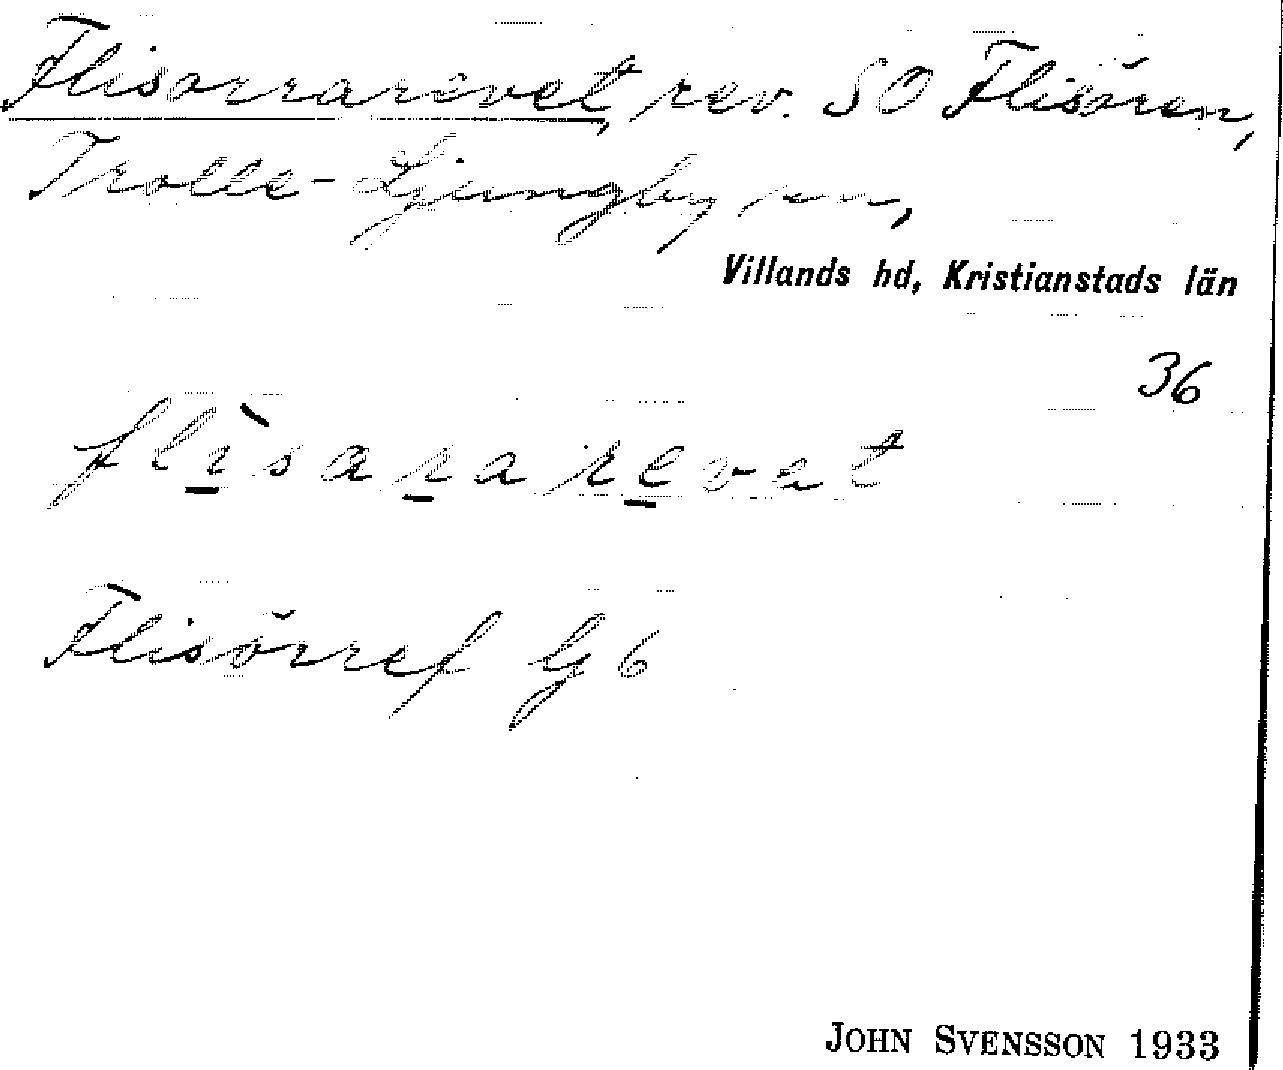 Flisorrarevet, rev. SO Flisören,
Trolle-Ljungby sn,
Villands hd, Kristianstads län
36
flìsararevat
Flisörref G 6
JOHN SVENSSON 1933